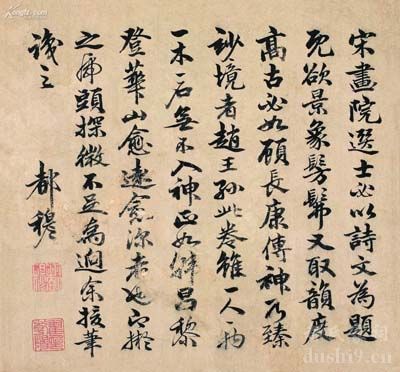 宋畫院選士必以詩文為題
既欲景象髣髴又取韻度
高古必如顧長康傳神乃臻
玅境者趙王孫此卷雖一人一物
一木一石無不入神正如韓昌黎
登華山愈遠愈深者也即擬
之虎頭探微不足為過余援筆
識之
都穆
dushi9.cn